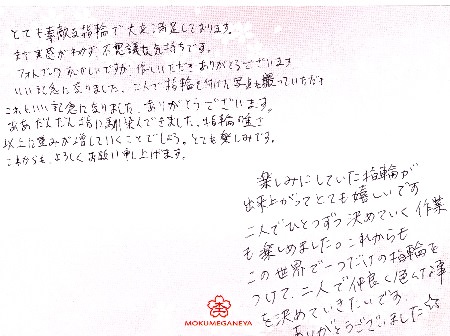 とても素敵な指輪で大変満足しております。
まだ実感がわかず、不思議な気持ちです。
フォトブック 恥かしいですが、嬉しいです ありがとうございます
いい記念に残りました、二人で指輪を付ける写真も撮っていただき
これもいい記念になりました、ありがとうございます。
ああだんだん指に馴染んできました、指輪の重さ
以上に重みが増していくことでしょう。とても楽しみです。
これからも、よろしくお願い申し上げます。
楽しみにしていた指輪が
出来上がってとても嬉しいです
二人でひとつずつ決めていく作業
も楽しめました。これからも
この世界で一つだけの指輪を
つけて、二人で仲良く色んな事
を決めていきたいです。
ありがとうございました☆
MOKUMEGANEYA